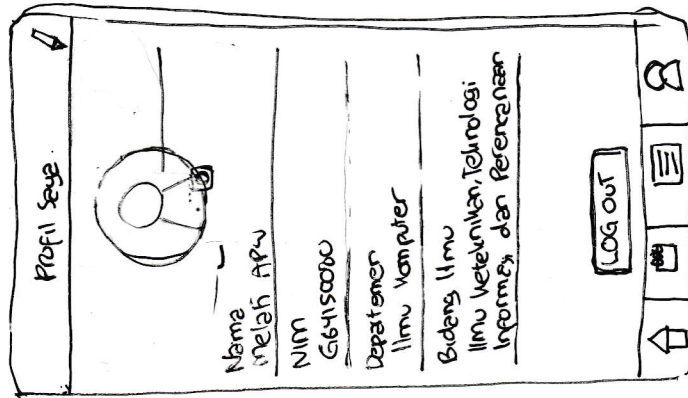 Profil Saya.
Nama
Melati APW
NIM
G64150080
Depatemen
Ilmu Komputer
Bidang Ilmu
Ilmu Keteknikan, Teknologi
Informasi, dan Perencanaan
LOG OUT